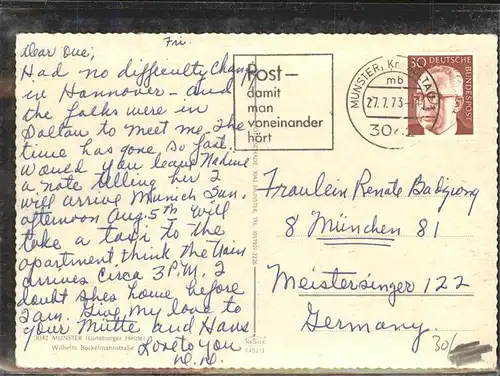 Fri.
Dear One;
Had no difficulty Chang
in Hannover — and
the folks were in
to meet me. The
time has gone so fast.
Would you leave Nadine
a note telling her I
will arrive Munich Sun.
afternoon Aug. 5th Will
take a taxi to the
apartment think the train
arrives circa 3 P.M. I
doubt shes home before
2 am. Give my love to
your Mütte and Hans
Love to you
3042 MUNSTER (Lüneburger Heide)
Wilhelm Bockelmannstraße
Post —
damit
man
voneinander
hört
MUNSTER, Kr.
mb
27.7.73
304
30 DEUTSCHE
BUNDESPOST
Fraulein Renate
8 München 81
Meistersinger 122
Germany